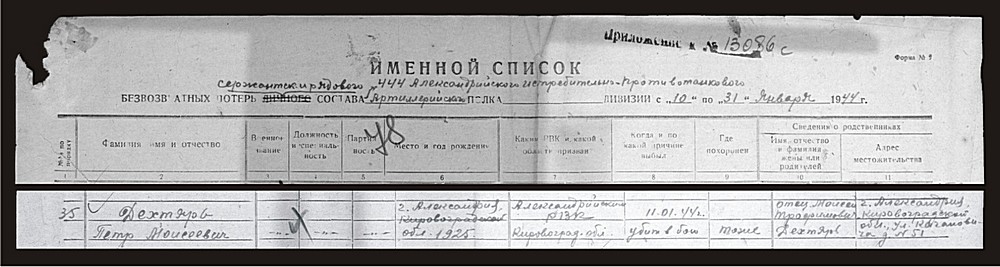 Приложение к № 13086 с
Форма № 2
ИМЕННОЙ СПИСОК
сержантск и рядового 444 Александрийского истребительно-противотанкового
БЕЗВОЗВРАТНЫХ ПОТЕРЬ ЛИЧНОГО СОСТАВА Артиллерийск ПОЛКА ДИВИЗИИ с "10" по "31" Января 1944 г.
№№ по порядку
Фамилия имя и отчество
Военное звание
Должность и специальность
Партийность
78
Место и год рождения
Каким РВК и какой области призван
Когда и по какой причине выбыл
Где похоронен
Сведения о родственниках
Имя, отчество и фамилия жены или родителей
Адрес местожительства
1 2 3 4 5 6 7 8 9 10 11
35 Дехтярь г. Александрия, Александрийским отец Моисей г. Александрия,
Кировоградской РВК 11.01.44г. Трофимович Кировоградской
Петр Моисеевич —„— —„— обл. 1925 Кировоград. обл. убит в бою тоже Дехтярь обл., ул. Кагановича д. №51